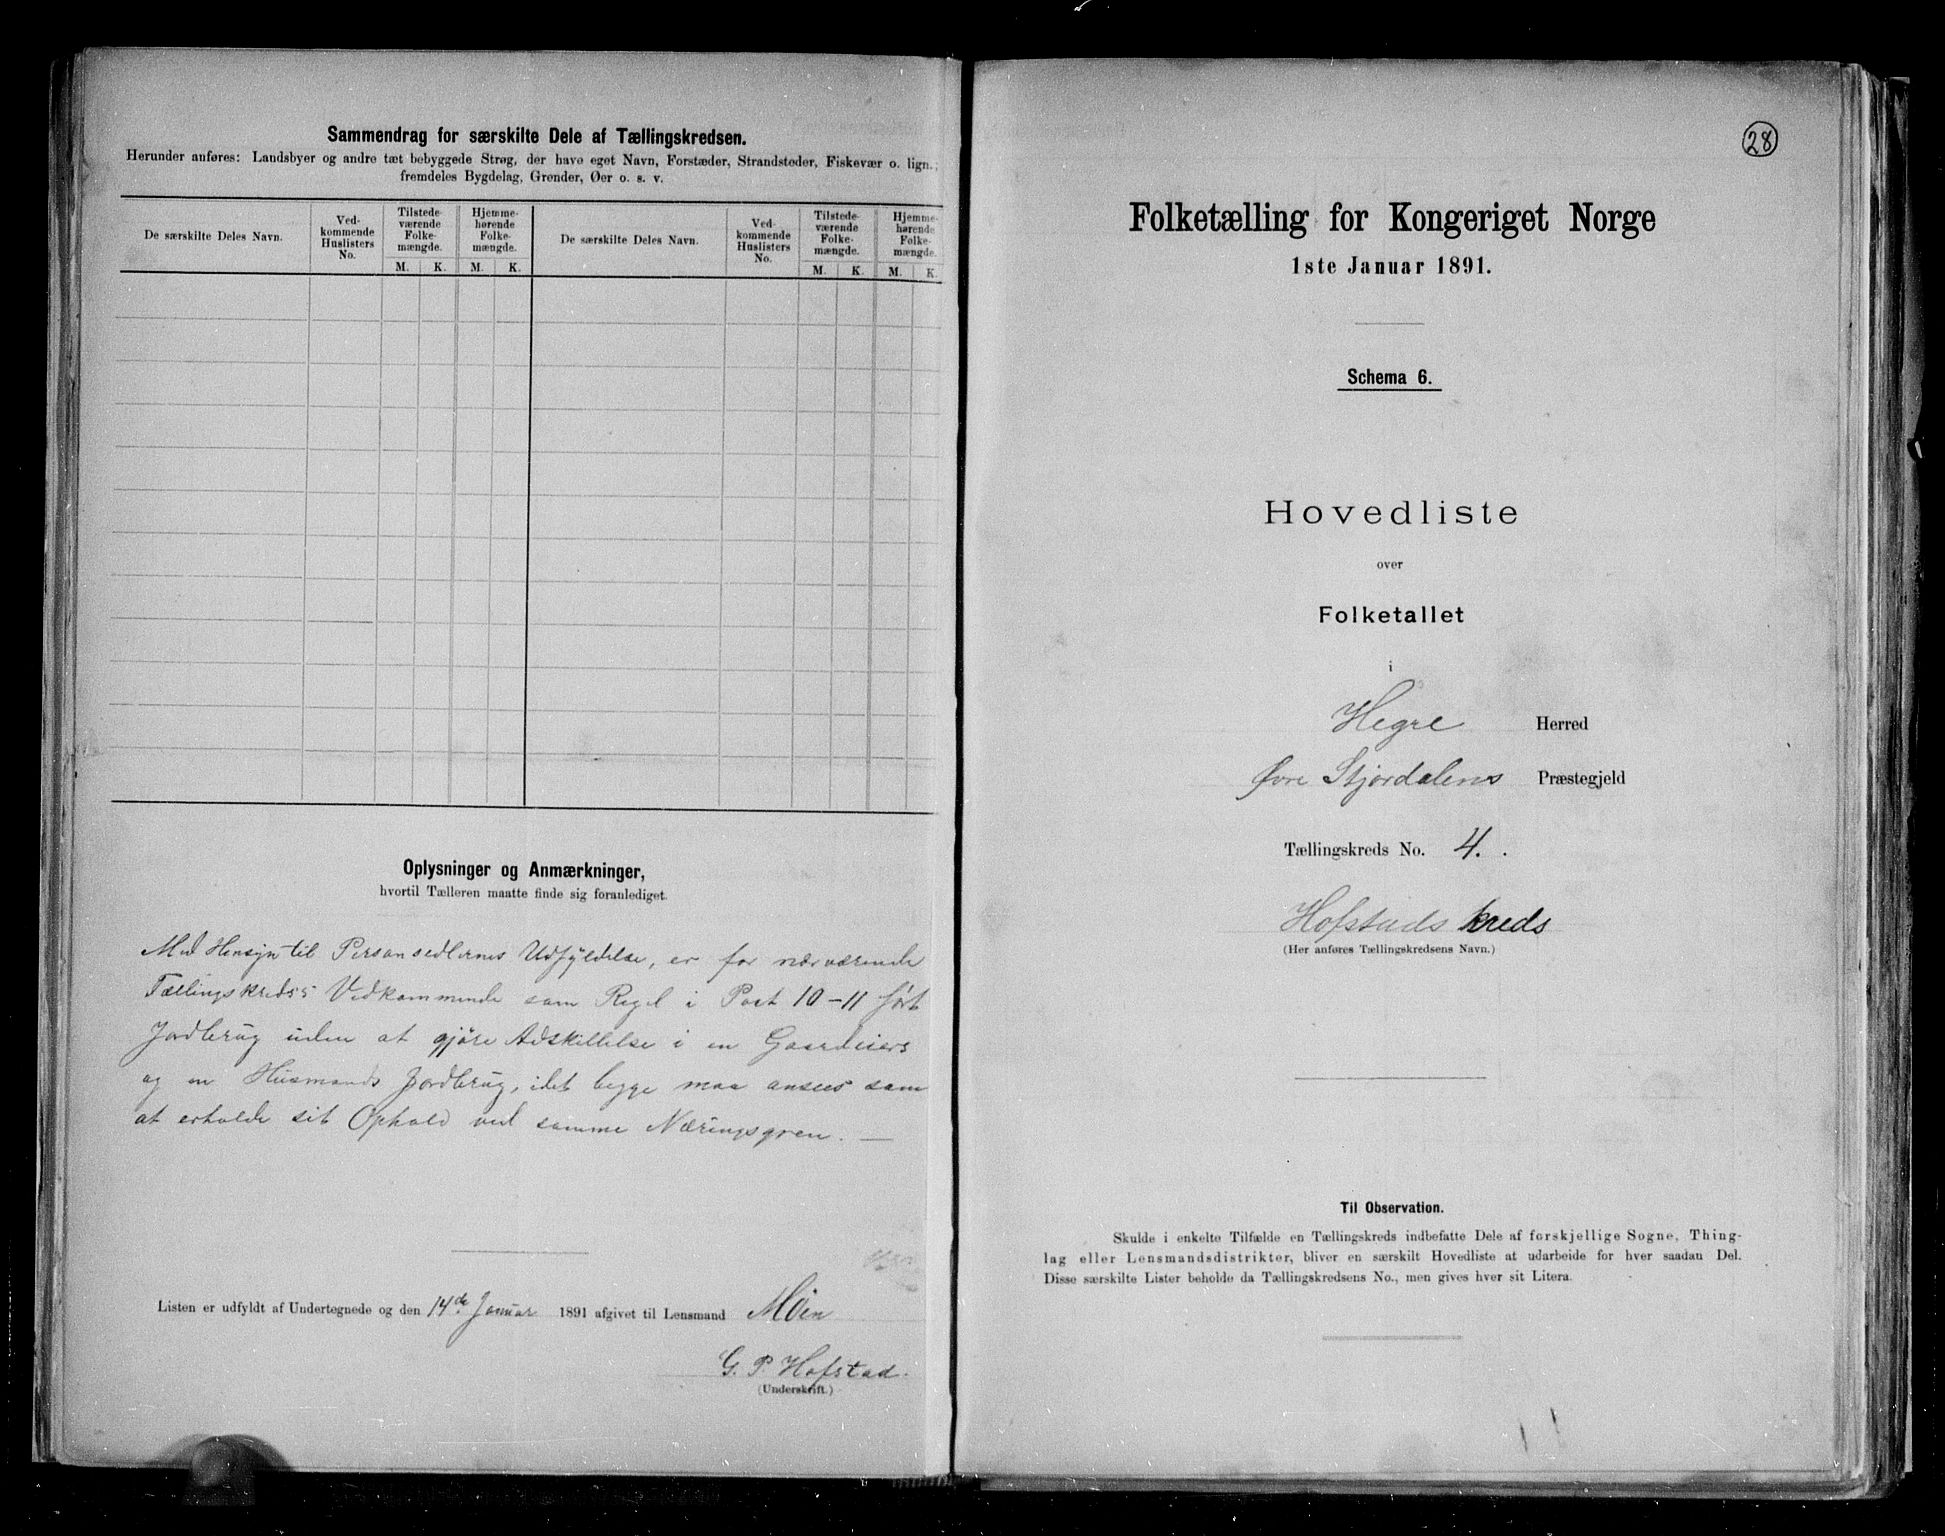 Sammendrag for særskilte Dele af Tællingskredsen.
Herunder anføres: Landsbyer og andre tæt bebyggede Strøg, der have eget Navn, Forstæder, Strandsteder, Fiskevær o. lign.,
fremdeles Bygdelag, Grender, Øer o. s. v.
De særskilte Deles Navn.
Ved-
kommende
Huslisters
No.
Tilstede-
værende
Folke-
mængde.
Hjemme-
hørende
Folke-
mængde.
M. K. M. K.
De særskilte Deles Navn.
Ved-
kommende
Huslisters
No.
Tilstede-
værende
Folke-
mængde.
Hjemme-
hørende
Folke-
mængde.
M. K. M. K.
Oplysninger og Anmærkninger,
hvortil Tælleren maatte finde sig foranlediget.
Med Hensyn til Personsedlernes Udfyldelse, er for nærværende
Tællingskreds's Vedkommende som Regel i Post 10-11 ført
Jordbrug uden at gjøre Adskillelse i en Gaardeiers
og en Husmands Jordbrug, idet begge maa ansees som
at erholde sit Ophold ved samme Næringsgren. —
Listen er udfyldt af Undertegnede og den 14de Januar 1891 afgivet til Lensmand Møin
G. P. Hofstad.
(Underskrift.)
28
Folketælling for Kongeriget Norge
1ste Januar 1891.
Schema 6.
Hovedliste
over
Folketallet
i
Hegre Herred
Øvre Stjørdalens Præstegjeld
Tællingskreds No. 4.
Hofstads kreds
(Her anføres Tællingskredsens Navn.)
Til Observation.
Skulde i enkelte Tilfælde en Tællingskreds indbefatte Dele af forskjellige Sogne, Thing-
lag eller Lensmandsdistrikter, bliver en særskilt Hovedliste at udarbeide for hver saadan Del.
Disse særskilte Lister beholde da Tællingskredsens No., men gives hver sit Litera.